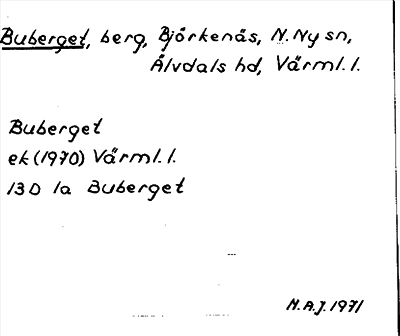 Buberget, berg, Björkenäs, N. Ny sn,
Älvdals hd, Värml. l.
Buberget
ek (1970) Värml. l.
13D 1a Buberget
N.A.J. 1971